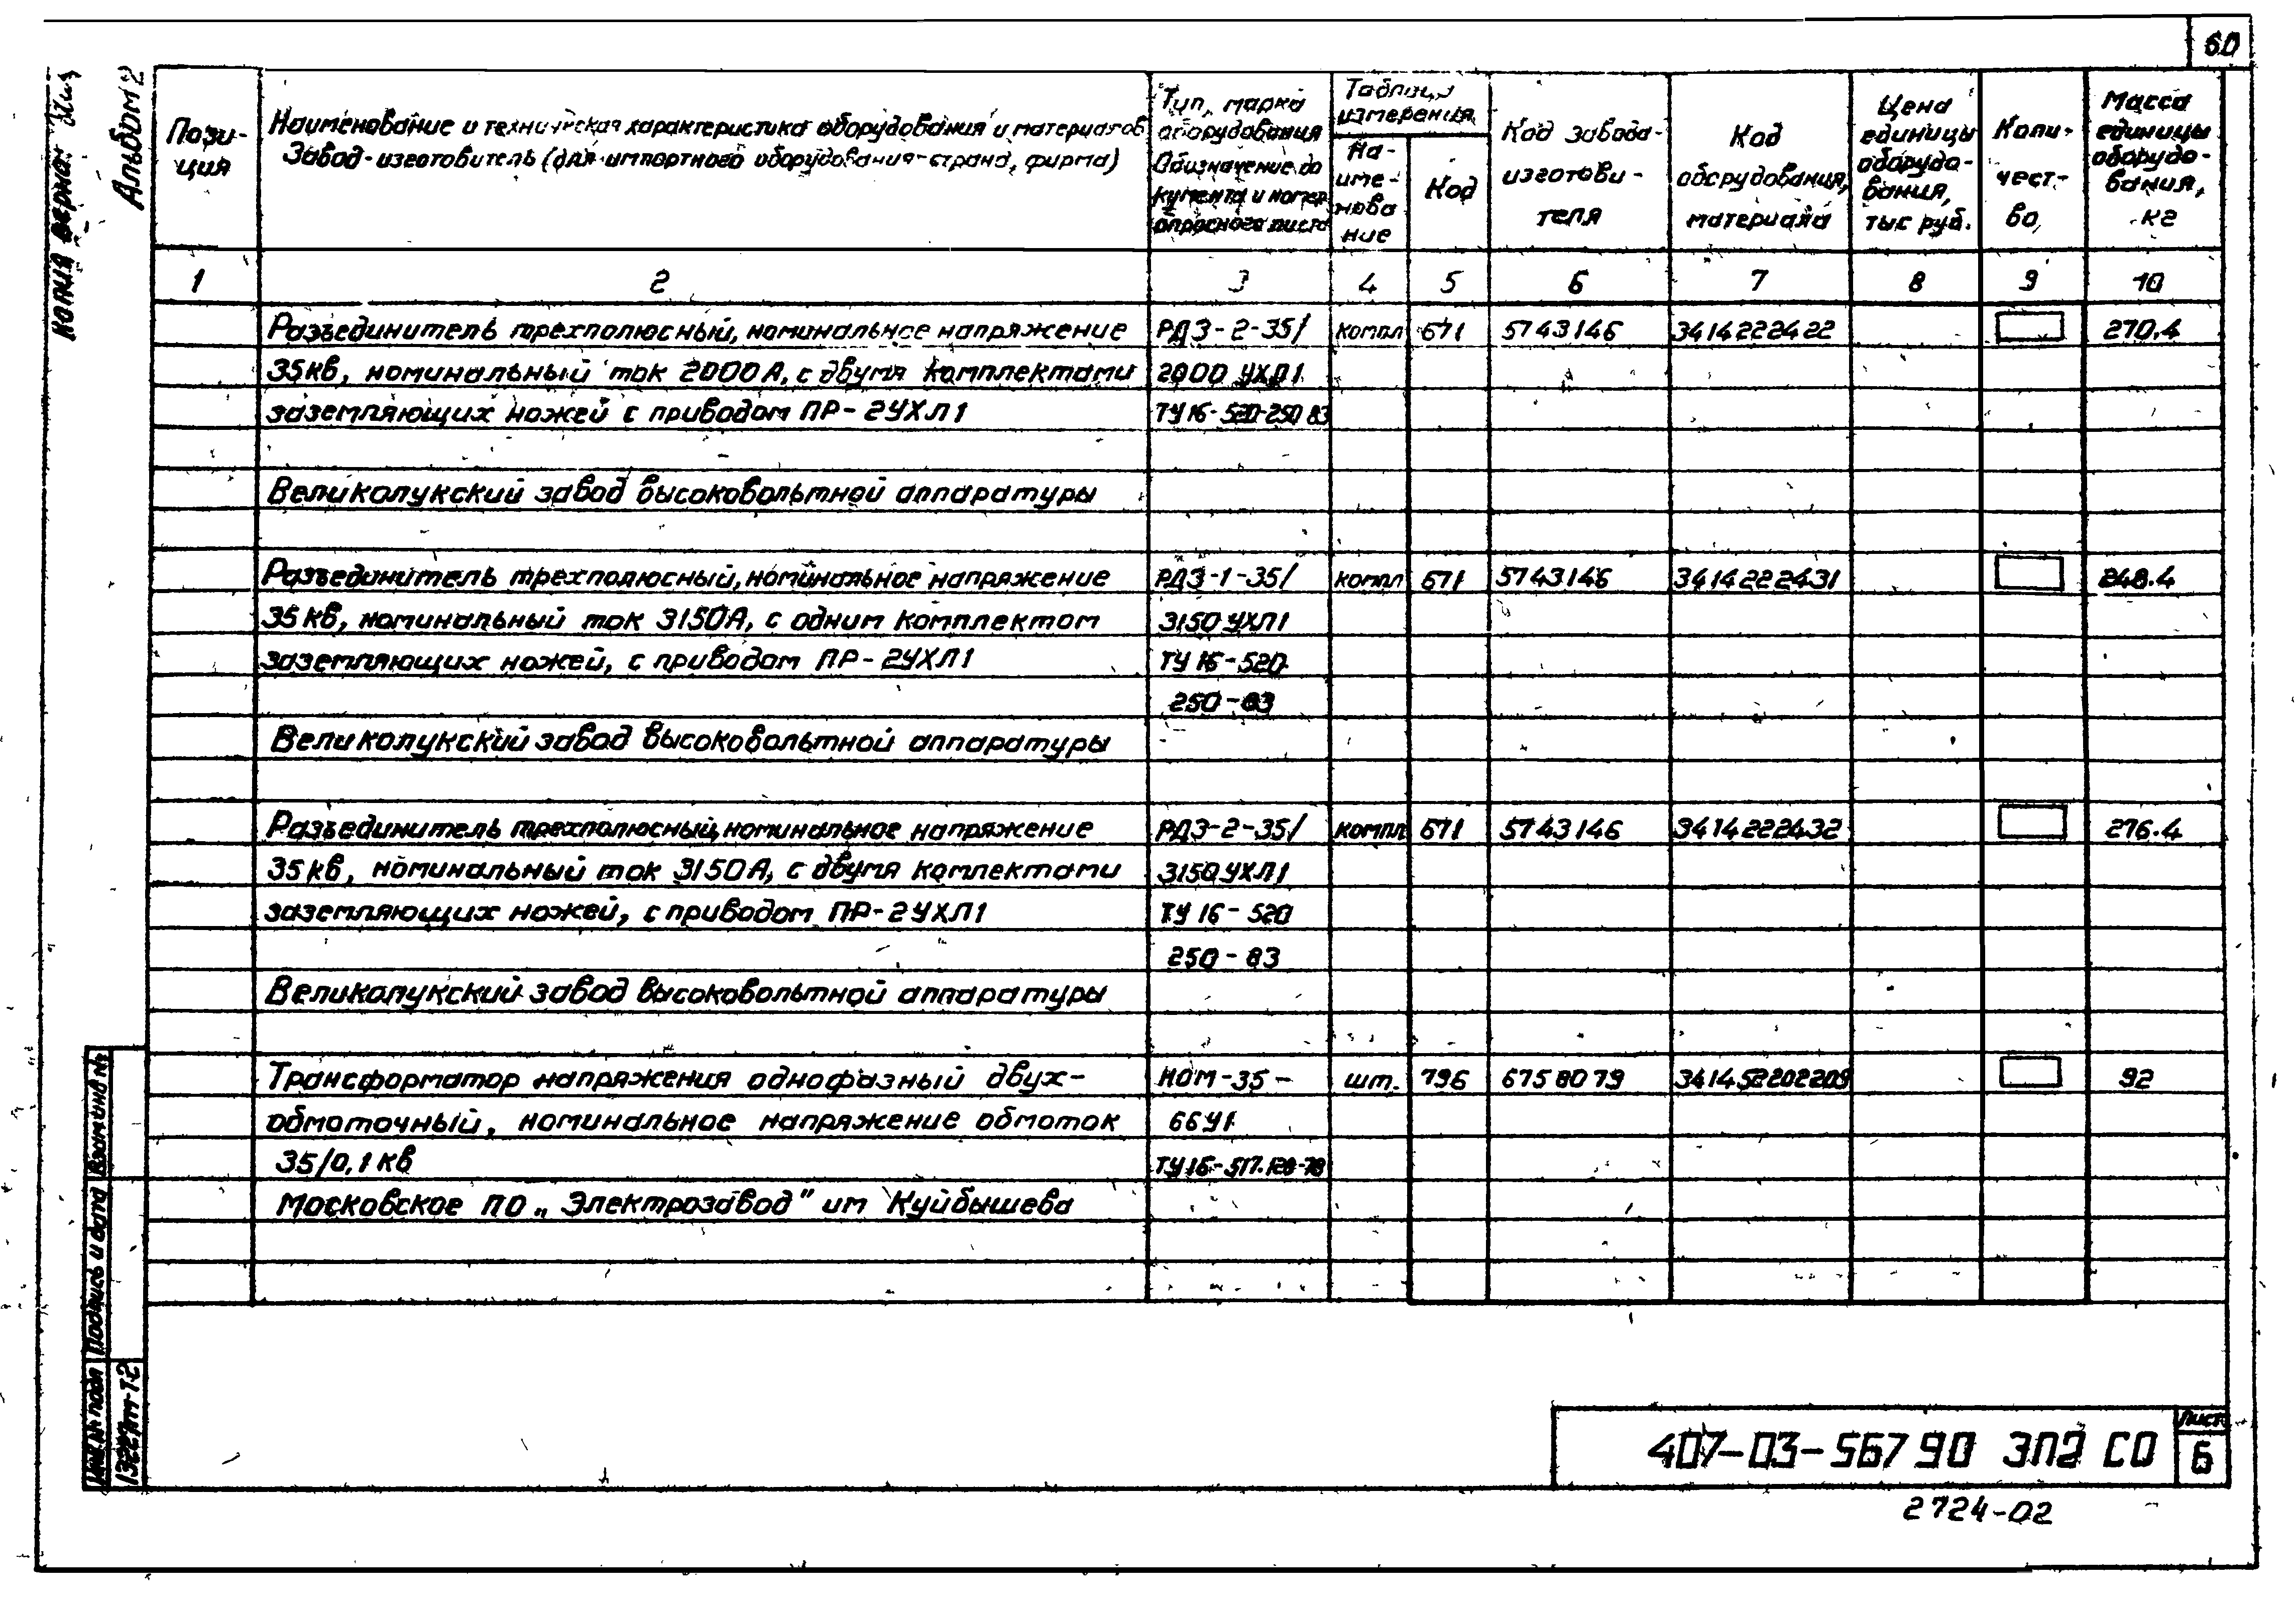 60
Копия верна:
Альбом 2
Пози-
ция
Наименование и техническая характеристика оборудования и материалов
Завод-изготовитель (для импортного оборудования-страна, фирма)
Тип, марка
оборудования
Обозначение до
кумента и номер
опросного листа
Таблица
измерения
На-
име-
нова
ние
Код
Код завода-
изготови-
теля
Код
оборудования,
материала
Цена
единицы
оборудо-
вания,
тыс руб.
Коли-
чест-
во
Масса
единицы
оборудо-
вания,
кг
1 2 3 4 5 6 7 8 9 10
Разъединитель трехполюсный, номинальное напряжение РДЗ-2-35/ компл 671 5743146 3414222422 270.4
35кв, номинальный ток 2000А, с двумя комплектами 2000 УХЛ1
заземляющих ножей с приводом ПР-2УХЛ1 ТУ16-520-250 83
Великолукский завод высоковольтной аппаратуры
Разъединитель трехполюсный, номинальное напряжение РДЗ-1-35/ компл 671 5743146 3414222431 248.4
35кв, номинальный ток 3150А, с одним комплектом 3150 УХЛ1
заземляющих ножей, с приводом ПР-2УХЛ1 ТУ 16-520.
250-83
Великолукский завод высоковольтной аппаратуры
Разъединитель трехполюсный, номинальное напряжение РДЗ-2-35/ компл 671 5743146 3414222432 276.4
35кв, номинальный ток 3150А, с двумя комплектами 3150УХЛ1
заземляющих ножей, с приводом ПР-2УХЛ1 ТУ 16-520
250-83
Великолукский завод высоковольтной аппаратуры
Трансформатор напряжения однофазный двух- НОМ-35- шт. 796 6758079 341452202209 92
обмоточный, номинальное напряжение обмоток 66У1
35/0,1кв ТУ16-517.128-78
Московское ПО „Электрозавод" им Куйбышева
Инв.№ подл Подпись и дата Взам инв №
13227тм-т2
407-03-567 90 ЭП2 СО
Лист
6
2724-02